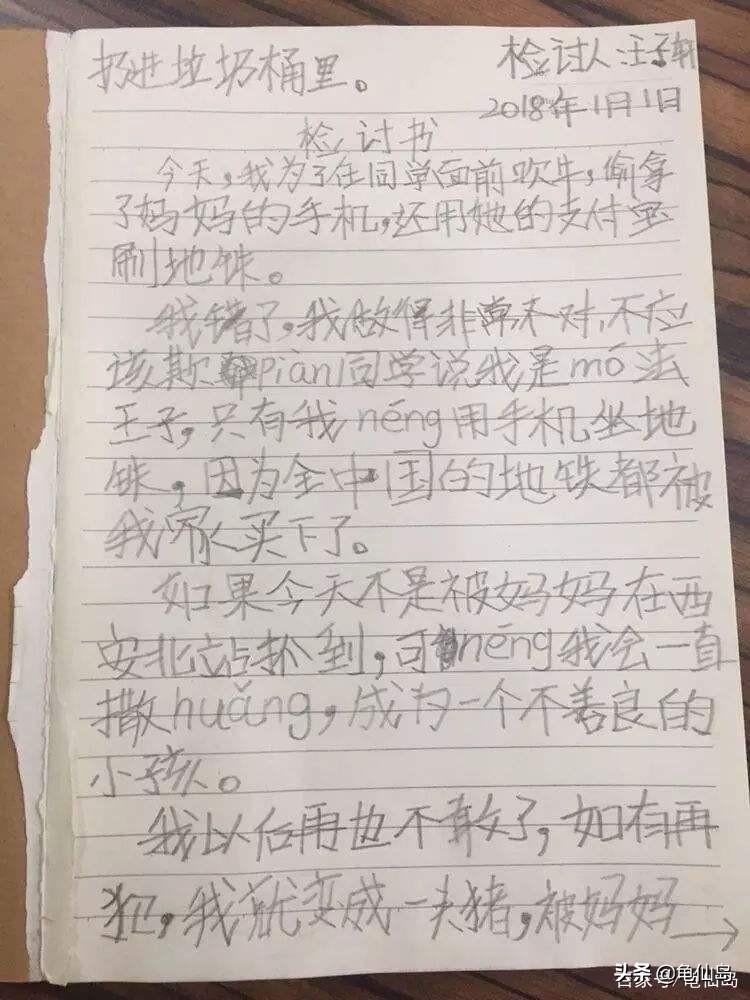 扔进垃圾桶里。 检讨人:王子轩
2018年1月1日
检讨书
今天,我为了在同学面前吹牛,偷拿
了妈妈的手机,还用她的支付宝
刷地铁。
我错了,我做得非常不对,不应
该欺piàn同学说我是mó法
王子,只有我néng用手机坐地
铁,因为全中国的地铁都被
我家买下了。
如果今天不是被妈妈在西
安北站抓到,可néng我会一直
撒huǎng,成为一个不善良的
小孩。
我以后再也不敢了,如有再
犯,我就变成一头猪,被妈妈→
头条@龟仙岛
百家号/龟仙岛